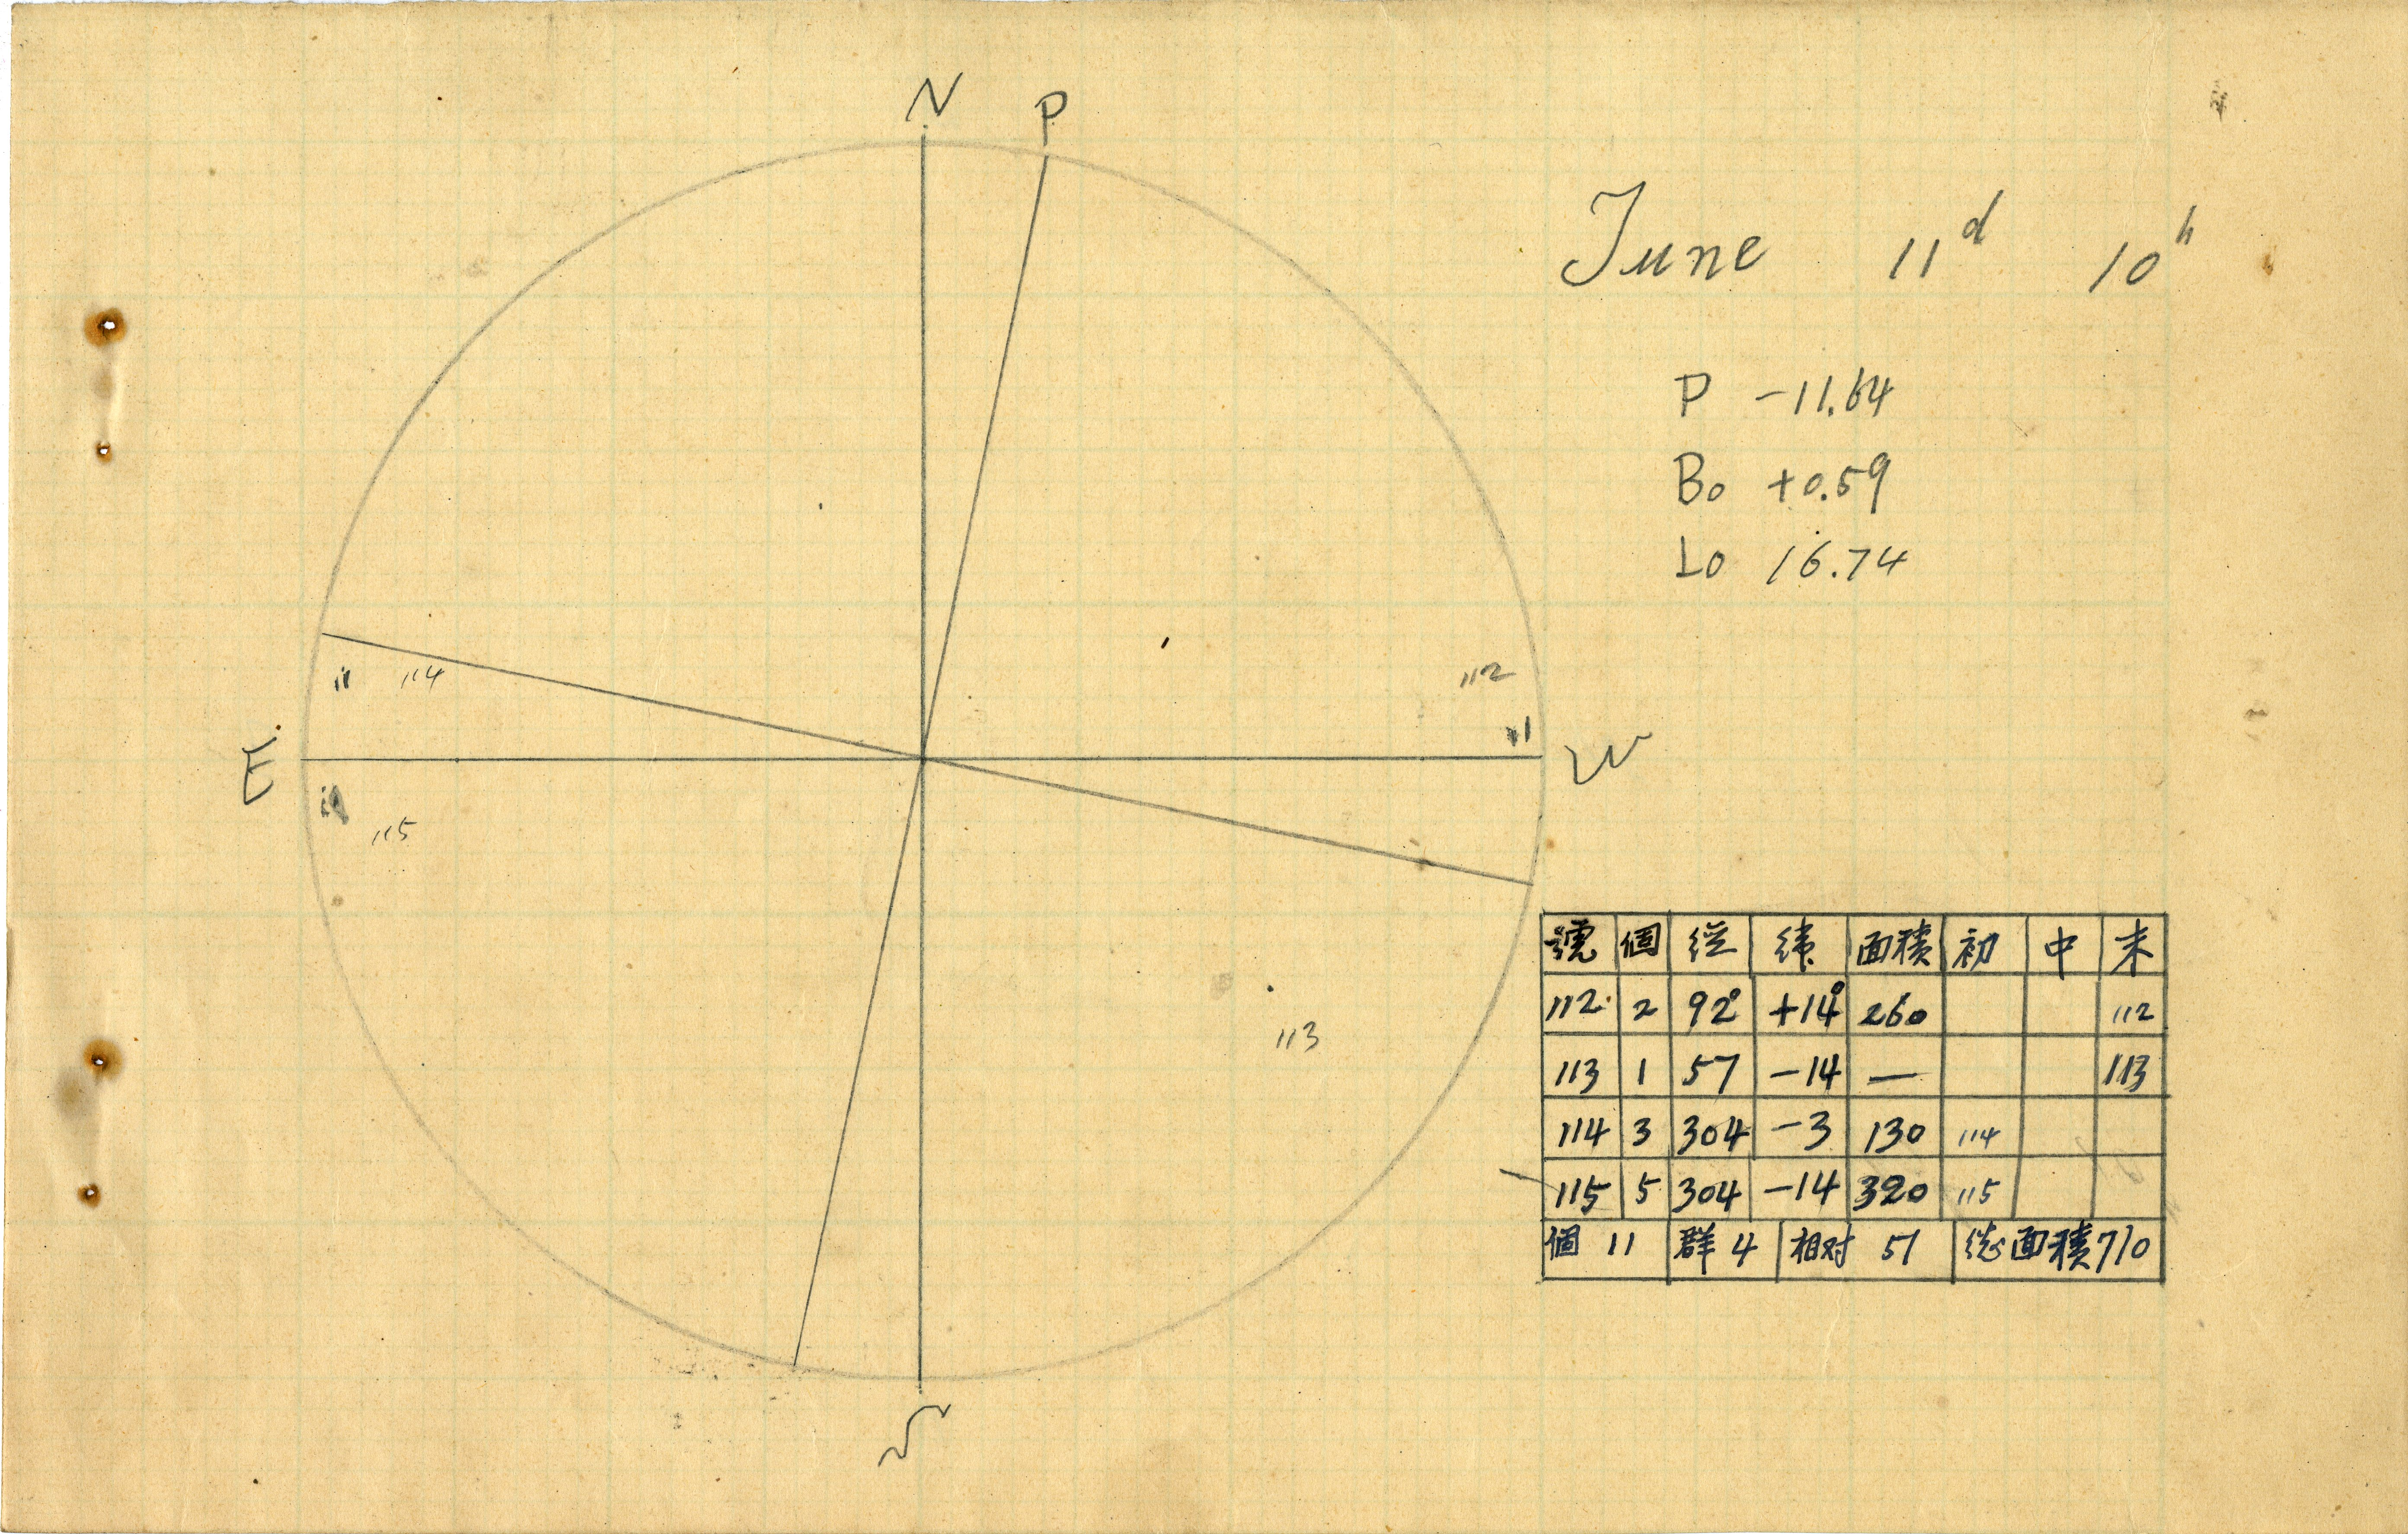 N P
June 11d 10h
P -11.64
Bo +0.59
Lo 16.74
114
112
E
W
115
113
號 個 経 緯 面積 初 中 末
112 2 92° +14° 260 112
113 1 57 -14 — 113
114 3 304 -3 130 114
115 5 304 -14 320 115
個 11 群 4 相対 51 総面積 710
S